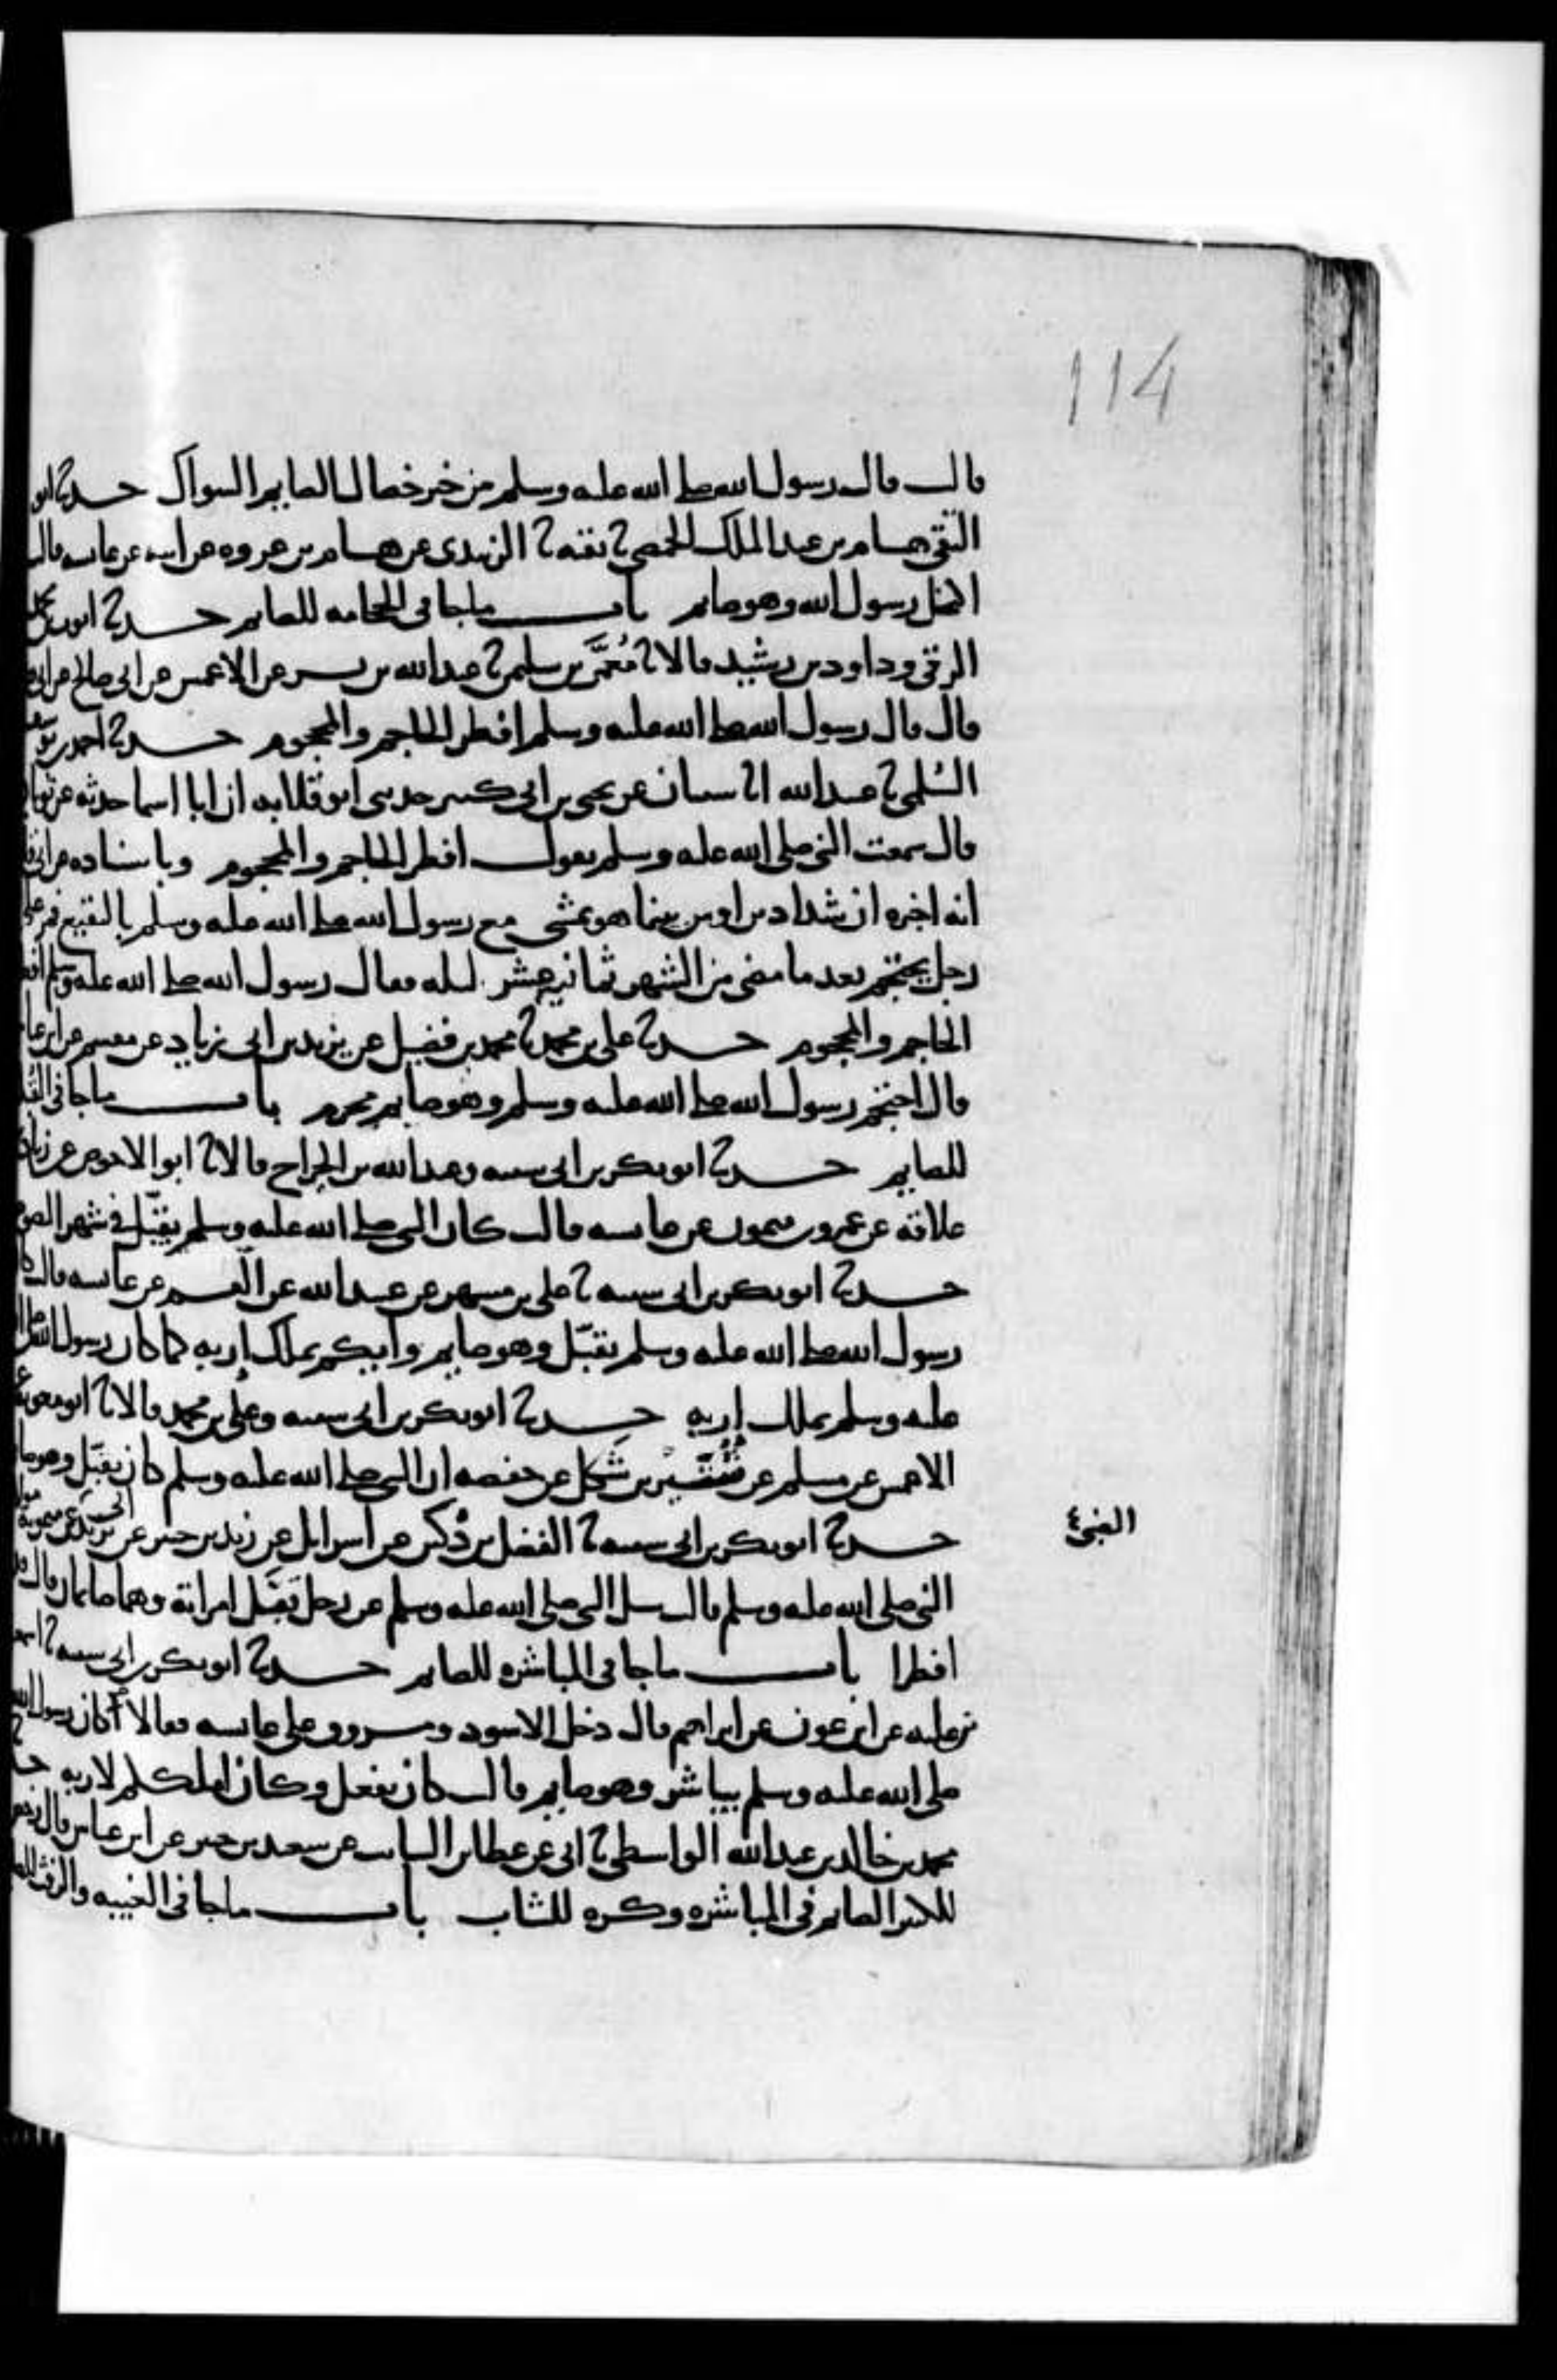 114
قالت قال رسول الله صلى الله عليه وسلم من خير خصال الصايم السواك حدثنا ابو
التقى هشام بن عبد الملك الحمصي ثنا بقية ثنا الزبيدي عن هشام بن عروه عن ابيه عن عايشه قالت
اكتحل رسول الله وهو صايم باب ماجا في الحجامه للصايم حدثنا ايوب بن محمد
الرقي وداود بن رشيد قالا ثنا مُعَمَّر بن سليمن ثنا عبد الله بن بشر عن الاعمش عن ابي صالح عن ابي
قال قال رسول الله صلى الله عليه وسلم افطر الحاجم والمحجوم حدثنا احمد بن يوسف
السُلمي ثنا عبيد الله انا شيبان عن يحيى بن ابي كثير حدثني ابو قلابه ان ابا اسما حدثه عن ثوبان
قال سمعت النبي صلى الله عليه وسلم يقول افطر الحاجم والمحجوم وباسناده عن ابي
انه اخبره ان شداد بن اوس بينما هو يمشي مع رسول الله صلى الله عليه وسلم بالبقيع فمر على
رجل يحتجم بعد ما مضى من الشهر ثماني عشر ليله فقال رسول الله صلى الله عليه وسلم افطر
الحاجم والمحجوم حدثنا علي بن محمد ثنا محمد بن فضيل عن يزيد بن ابي زياد عن مقسم عن ابن عباس
قال احتجم رسول الله صلى الله عليه وسلم وهو صايم محرم باب ماجا في القُبله
للصايم حدثنا ابو بكر بن ابي شيبه وعبد الله بن الجراح قالا ثنا ابو الاحوص عن زياد
علاقه عن عمرو بن ميمون عن عايشه قالت كان النبي صلى الله عليه وسلم يقبّل في شهر الصوم
حدثنا ابو بكر بن ابي شيبه ثنا علي بن مسهر عن عبيد الله عن القسم عن عايشه قالت كان
رسول الله صلى الله عليه وسلم يقبّل وهو صايم وايكم يملك إربه كما كان رسول الله صلى الله
عليه وسلم يملك إربه حدثنا ابو بكر بن ابي شيبه وعلي بن محمد قالا ثنا ابو معويه عن
الاعمش عن مسلم عن شُتَيْر بن شَكل عن حفصه ان النبي صلى الله عليه وسلم كان يقبّل وهو صايم
حدثنا ابو بكر بن ابي شيبه ثنا الفضل بن دُكين عن اسرايل عن زيد بن جبير عن ابي يزيد عن ميمونة مولاة
الضبي
النبي صلى الله عليه وسلم قالت سئل النبي صلى الله عليه وسلم عن رجل يقبّل امراته وهما صايمان قال قد
افطرا باب ماجا في المباشره للصايم حدثنا ابو بكر بن ابي شيبه ثنا اسمعيل
بن عليه عن ابن عون عن ابراهيم قال دخل الاسود ومسروق على عايشه فقالا أكان رسول الله
صلى الله عليه وسلم يباشر وهو صايم قالت كان يفعل وكان املككم لاربه حدثنا
محمد بن خالد بن عبد الله الواسطي ثنا ابي عن عطا بن السايب عن سعيد بن جبير عن ابن عباس قال رخص
للكبير الصايم في المباشره وكره للشاب باب ماجا في الغيبه والرفث للصايم